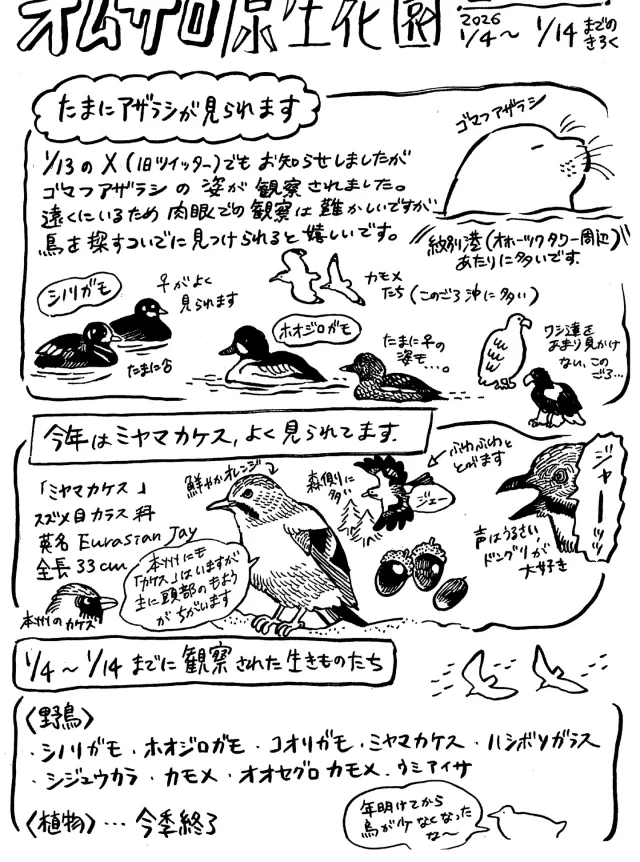 オムサロ原生花園
2026
1/4〜1/14 までの
きろく
たまにアザラシが見られます
ゴマフアザラシ
1/13のX(旧ツイッター)でもお知らせしましたが
ゴマフアザラシの姿が観察されました。
遠くにいるため肉眼での観察は難かしいですが
鳥を探すついでに見つけられると嬉しいです。
紋別港(オホーツクタワー周辺)
あたりに多いです.
シノリガモ
♀がよく
見られます
たまに♂
カモメ
たち(このごろ沖に多い)
ホオジロガモ
たまに♀の
姿も…。
ワシ達を
あまり見かけ
ない、この
ごろ…
今年はミヤマカケス,よく見られてます.
「ミヤマカケス」
スズメ目カラス科
英名 Eurasian Jay
全長33cm
本州のカケス
鮮やかオレンジ
本州にも
「カケス」はいますが
主に頭部のもよう
がちがいます
森側に
多い
ジェー
ふわふわっと
とびます
ジャーッッ
声はうるさい,
ドングリが
大好き
1/4〜1/14までに観察された生きものたち
〈野鳥〉
・シノリガモ・ホオジロガモ・コオリガモ・ミヤマカケス・ハシボソガラス
・シジュウカラ・カモメ・オオセグロカモメ.ウミアイサ
〈植物〉…今季終了
年明けてから
鳥が少なくなった
な〜